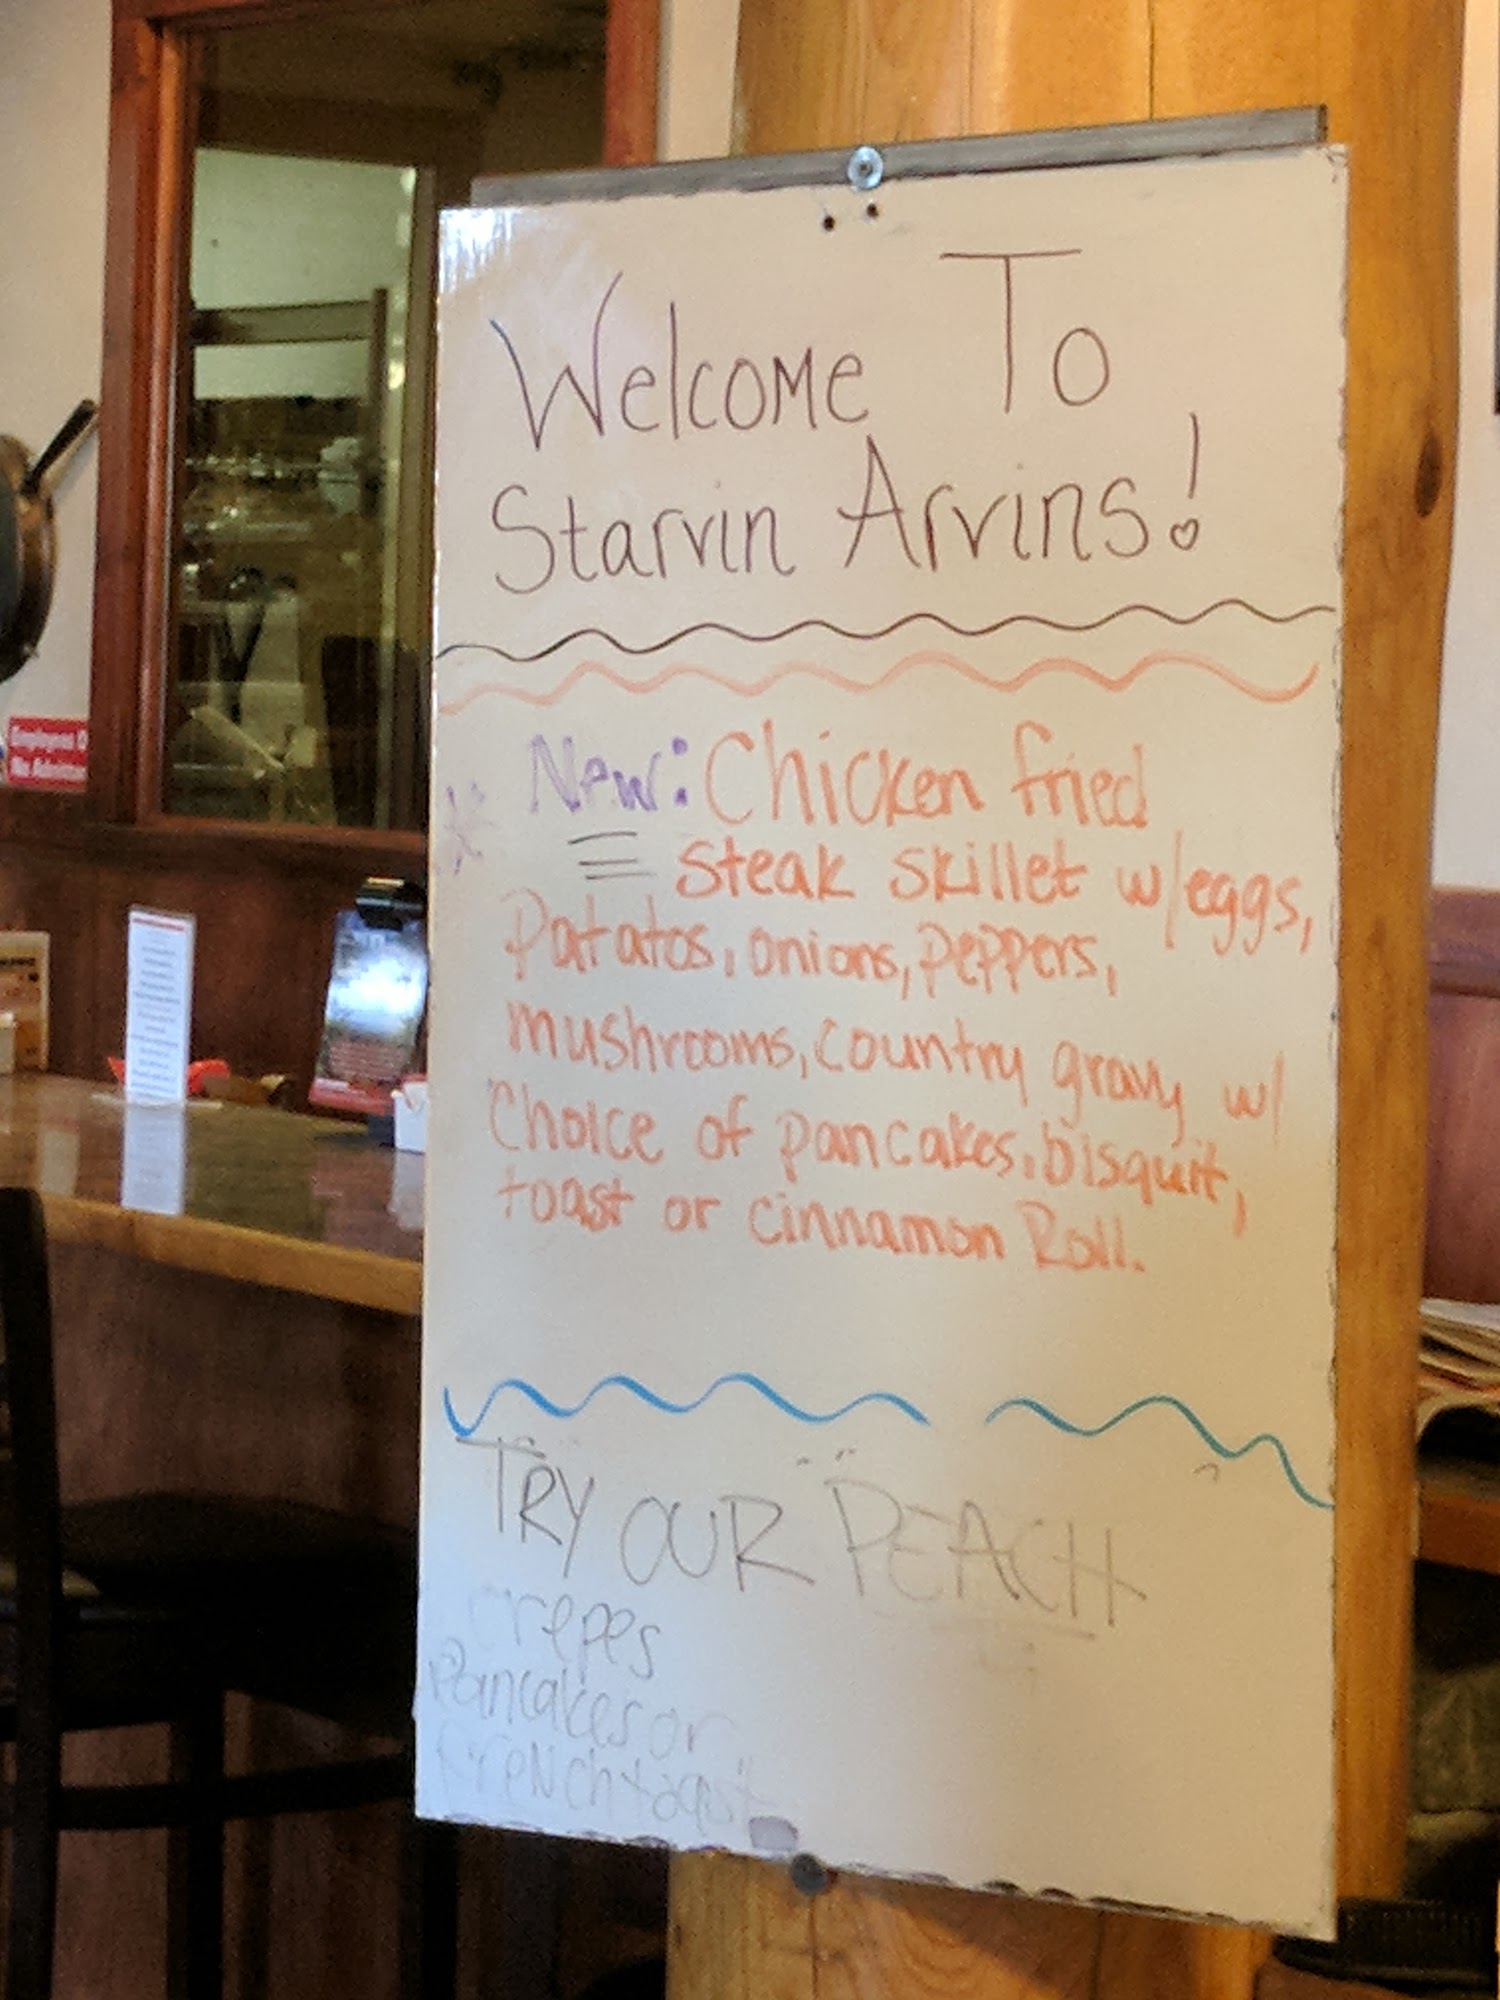 Welcome To
Starvin Arvins!
New: Chicken fried
steak skillet w/eggs,
Patatos, onions, peppers,
mushrooms, country gravy w/
Choice of pancakes, bisquit,
toast or cinnamon Roll.
TRY OUR PEACH
crepes
Pancakes or
french toast
Employees
No Admittan